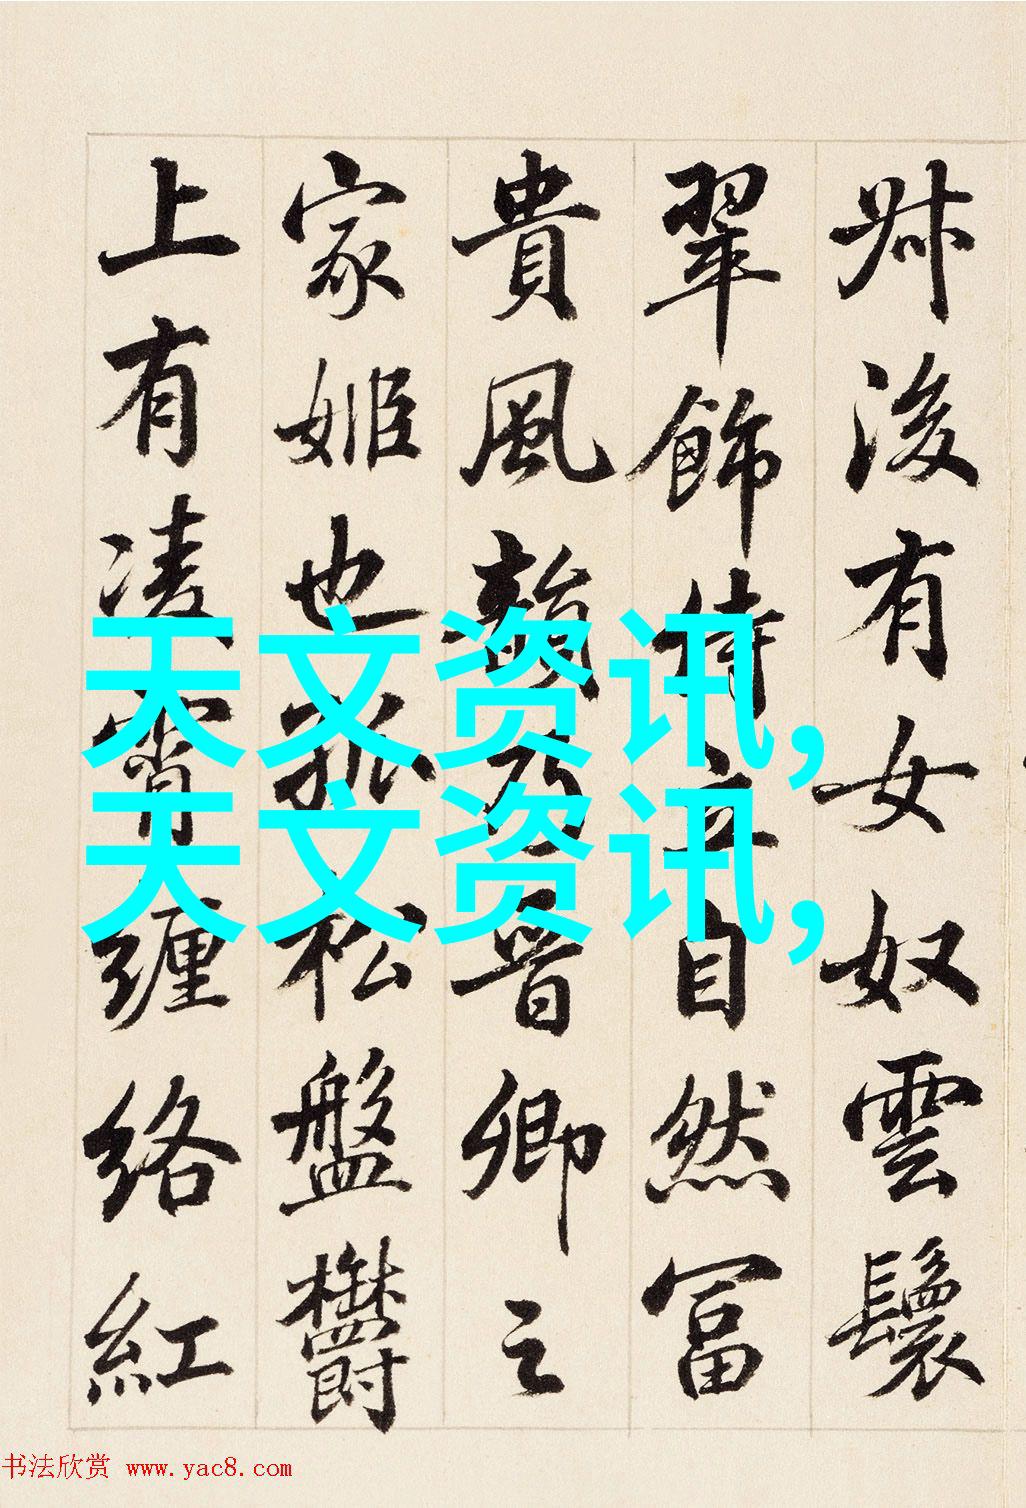 叔後有女奴雲鬟
翠飾侍立自然富
貴風韻乃晋卿之
家姬也孤松盤欝
上有凌霄纏絡紅
天文资讯,
天文资讯,
书法欣赏 www.yac8.com